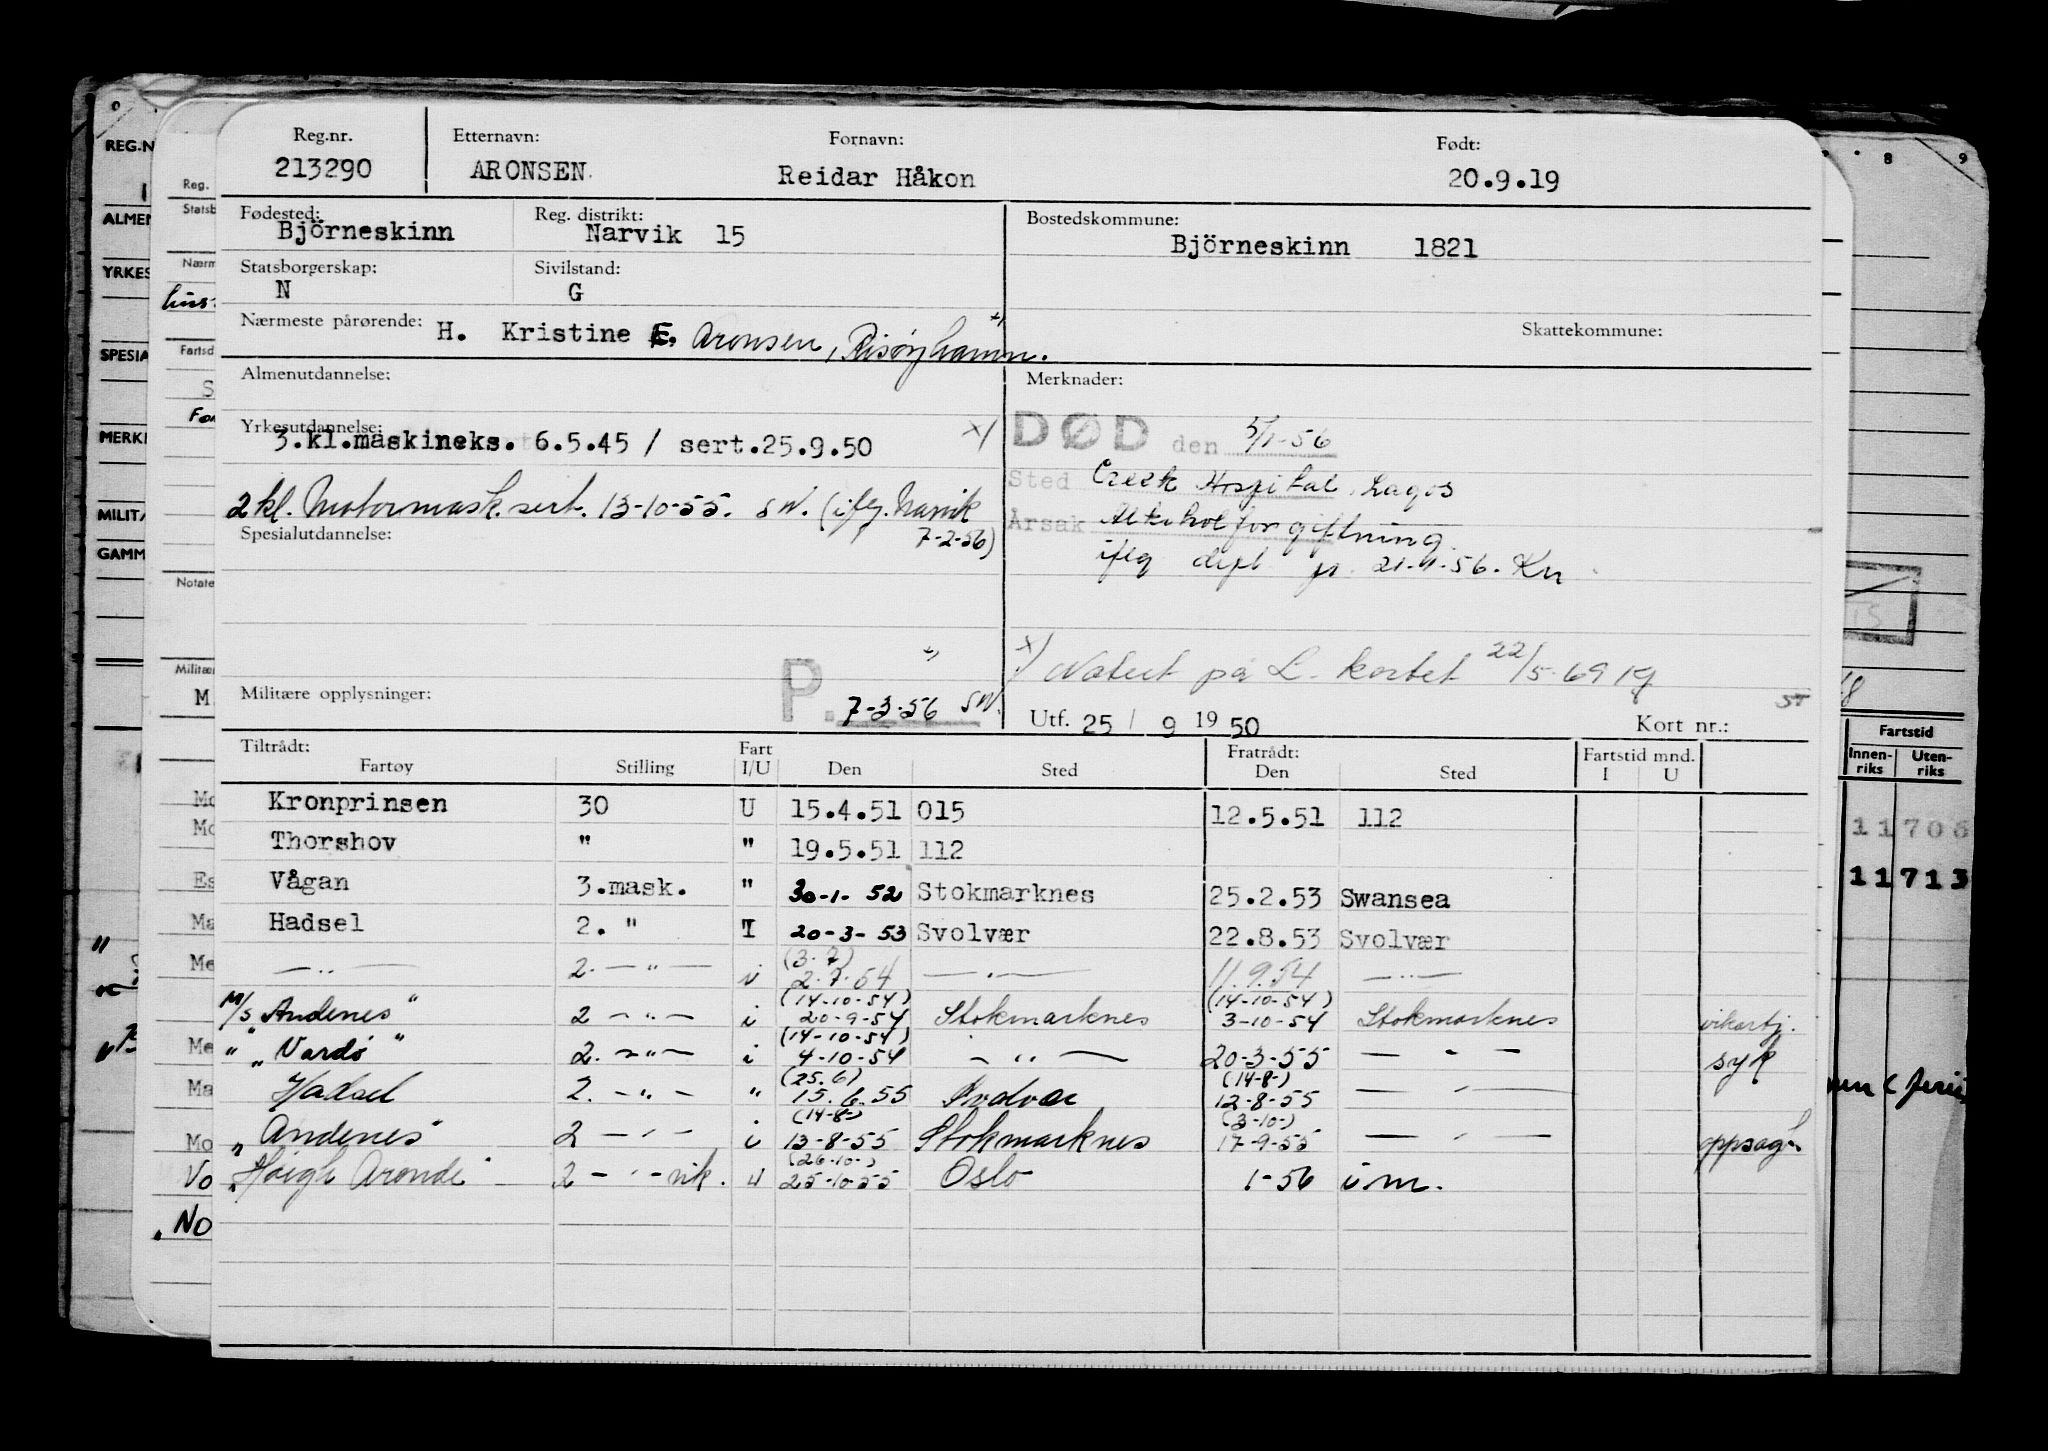 Reg.nr. Etternavn: Fornavn: Født:
213290 ARONSEN. Reidar Håkon 20.9.19
Fødested: Reg. distrikt: Bostedskommune:
Björneskinn Narvik 15 Björneskinn 1821
Statsborgerskap: Sivilstand:
N G
Nærmeste pårørende: H. Kristine E. Aronsen, Risøyhamn. Skattekommune:
Almenutdannelse: Merknader:
Yrkesutdannelse: x/ DØD den 5/1-56
3.kl.maskineks. 6.5.45 / sert.25.9.50
Sted Creek Hospital, Lagos
2 kl. Motormask.sert. 13-10-55. SW. (iflg. Narvik
7-2-56)
Årsak Alkoholforgiftning
iflg dept 21-1-56. Kn
Spesialutdannelse:
x/ Notert på L. kortet 22/5-69
Militære opplysninger: P. 7-3-56 SW.
Utf. 25 / 9 1950 Kort nr.:
Tiltrådt: Fart Fratrådt: Fartstid mnd.
Fartøy Stilling I/U Den Sted Den Sted I U
Kronprinsen 30 U 15.4.51 015 12.5.51 112
Thorshov " " 19.5.51 112
Vågan 3.mask. " 30-1-52 Stokmarknes 25.2.53 Swansea
Hadsel 2. " I 20-3-53 Svolvær 22.8.53 Svolvær
(3.7)
— " — 2. — " — i 2.7.54 — " — 11.9.54 — " —
(14-10-54) (14-10-54)
M/S Andenes" 2 — " — i 20-9-54 Stokmarknes 3-10-54 Stokmarknes vikartj.
(14-10-54)
" "Vardø" 2. — " — i 4-10-54 — " — 20-3-55 — " — syk
(25.6) (14-8-)
Hadsel 2. — " — " 15.6.55 Svolvær 12-8-55 — " —
(14-8-) (3-10-)
"Andenes" 2 — " — i 13-8-55 Stokmarknes 17-9-55 — " — oppsagt
(26-10-)
"Høigh Aronde" 2 — " — vik. u 25-10-55 Oslo 1-56 i m.
REG.N
ALMEN
YRKES
SPESIA
MERK
MILITÆ
GAMM
Reg.
Statsb
Nærm
Fartsd
Notate
Militær
M.
Fartstid
Innenriks Utenriks
11706
11713